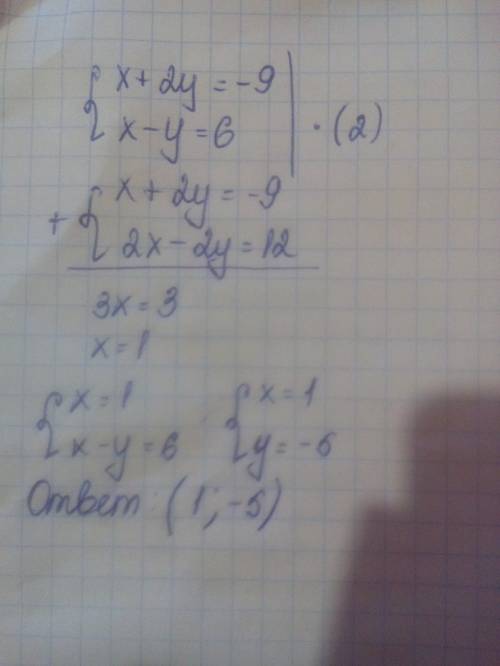 { x + 2y = -9
x - y = 6 | · (2)
+ { x + 2y = -9
2x - 2y = 12
3x = 3
x = 1
{ x = 1 { x = 1
x - y = 6 y = -5
Ответ: (1; -5)